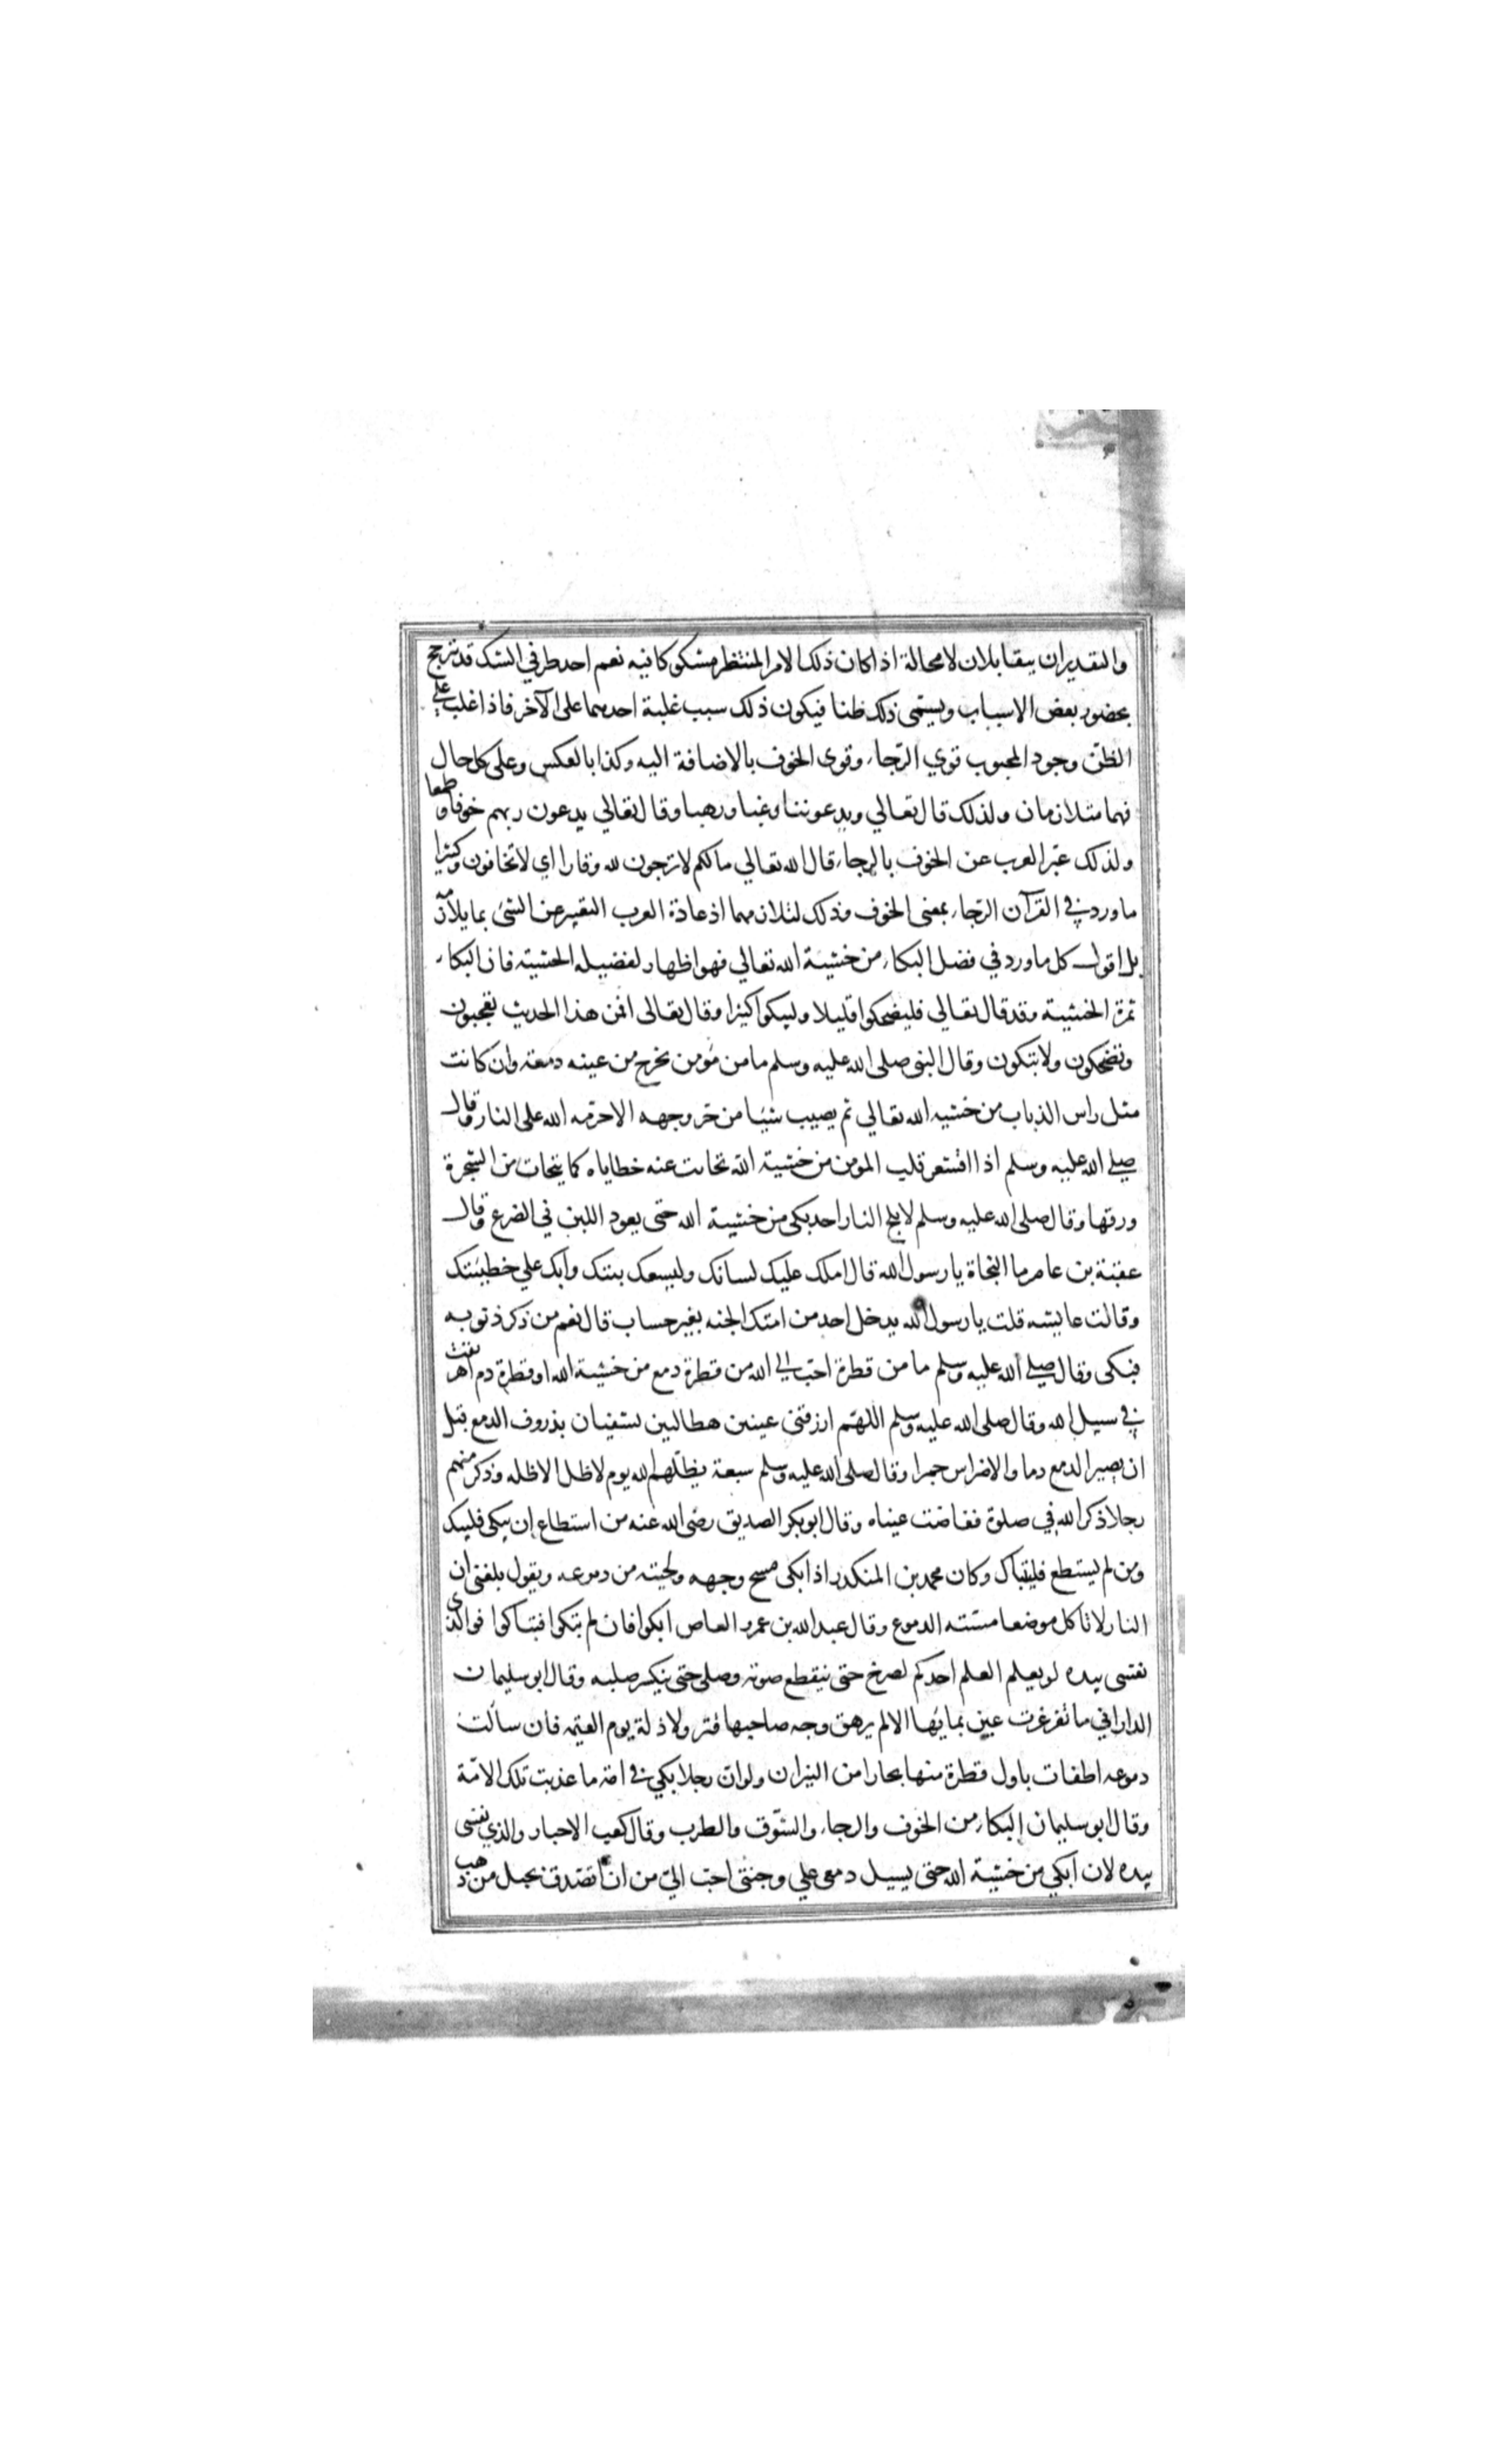 والتقديران يتقابلان لامحالة اذا كان ذلك الامر المنتظر مشكوكا فيه نعم احد طرفي الشك قد يترجح
بحضور بعض الاسباب ويسمى ذلك ظنا فيكون ذلك سبب غلبة احدهما على الآخر فاذا اغلب على
الظنّ وجود المحبوب قوي الرّجاء وقوى الخوف بالاضافة اليه وكذا بالعكس وعلى كل حال
فهما متلازمان ولذلك قال تعالي ويدعوننا رغبا ورهبا وقال تعالي يدعون ربهم خوفا وطمعا
ولذلك عبّر العرب عن الخوف بالرجاء قال الله تعالي مالكم لا ترجون لله وقارا اي لا تخافون وكثيرا
ما ورد في القرآن الرّجاء بمعنى الخوف وذلك لتلازمهما اذ عادة العرب التعبير عن الشئ بما يلازمه
بل اقول كل ما ورد في فضل البكاء من خشية الله تعالي فهو اظهار لفضيله الخشيته فان البكاء
ثمرة الخشية وقد قال تعالي فليضحكوا قليلا وليبكوا كثيرا وقال تعالى افمن هذا الحديث تعجبون
وتضحكون ولا تبكون وقال النبى صلى الله عليه وسلم ما من مؤمن تخرج من عينه دمعة وان كانت
مثل راس الذباب من خشيه الله تعالي ثم يصيب شيئا من حر وجهه الا حرّمه الله على النار وقال
صلى الله عليه وسلم اذا اقشعر قلب المومن من خشية الله تحاتت عنه خطاياه كما يتحات من الشجرة
ورقها وقال صلى الله عليه وسلم لا يلج النار احد بكى من خشية الله حتى يعود اللبن في الضرع وقال
عقبة بن عامر ما النجاة يا رسول الله قال املك عليك لسانك وليسعك بيتك وابك علي خطيئتك
وقالت عايشه قلت يا رسول الله يدخل احد من امتك الجنه بغير حساب قال نعم من ذكر ذنوبه
فبكى وقال صلى الله عليه وسلم ما من قطرة احبّ الي الله من قطرة دمع من خشية الله او قطرة دم اهريقت
في سبيل الله وقال صلى الله عليه وسلم اللهمّ ارزقنى عينين هطالين تشفيان بذروف الدمع قبل
ان يصير الدمع دما والاضراس جمرا وقال صلى الله عليه وسلم سبعة يظلّهم الله يوم لا ظل الا ظله وذكر منهم
رجلا ذكر الله في صلوة ففاضت عيناه وقال ابو بكر الصديق رضى الله عنه من استطاع ان يبكى فليبك
ومن لم يستطع فليتباك وكان محمد بن المنكدر اذا بكى مسح وجهه ولحيته من دموعه ويقول بلغنى ان
النار لا تاكل موضعا مسّته الدموع وقال عبد الله بن عمرو العاص ابكوا فان لم تبكوا فتباكوا فوالذى
نفسى بيده لو يعلم العلم احدكم لصرخ حتى ينقطع صوته وصلى حتى ينكسر صلبه وقال ابو سليمان
الداراني ما تغرغرت عين بمايها الا لم يرهق وجه صاحبها قتر ولا ذلة يوم القيمه فان سالت
دموعه اطفات باول قطرة منها بحارا من النيران ولو انّ رجلا بكي في امة ما عذبت تلك الامّة
وقال ابو سليمان البكاء من الخوف والرجاء والشّوق والطرب وقال كعب الاحبار والذي نفسى
بيده لان ابكي من خشية الله حتى يسيل دمعى علي وجنتى احبّ اليّ من ان اتصدق بجبل من ذهب